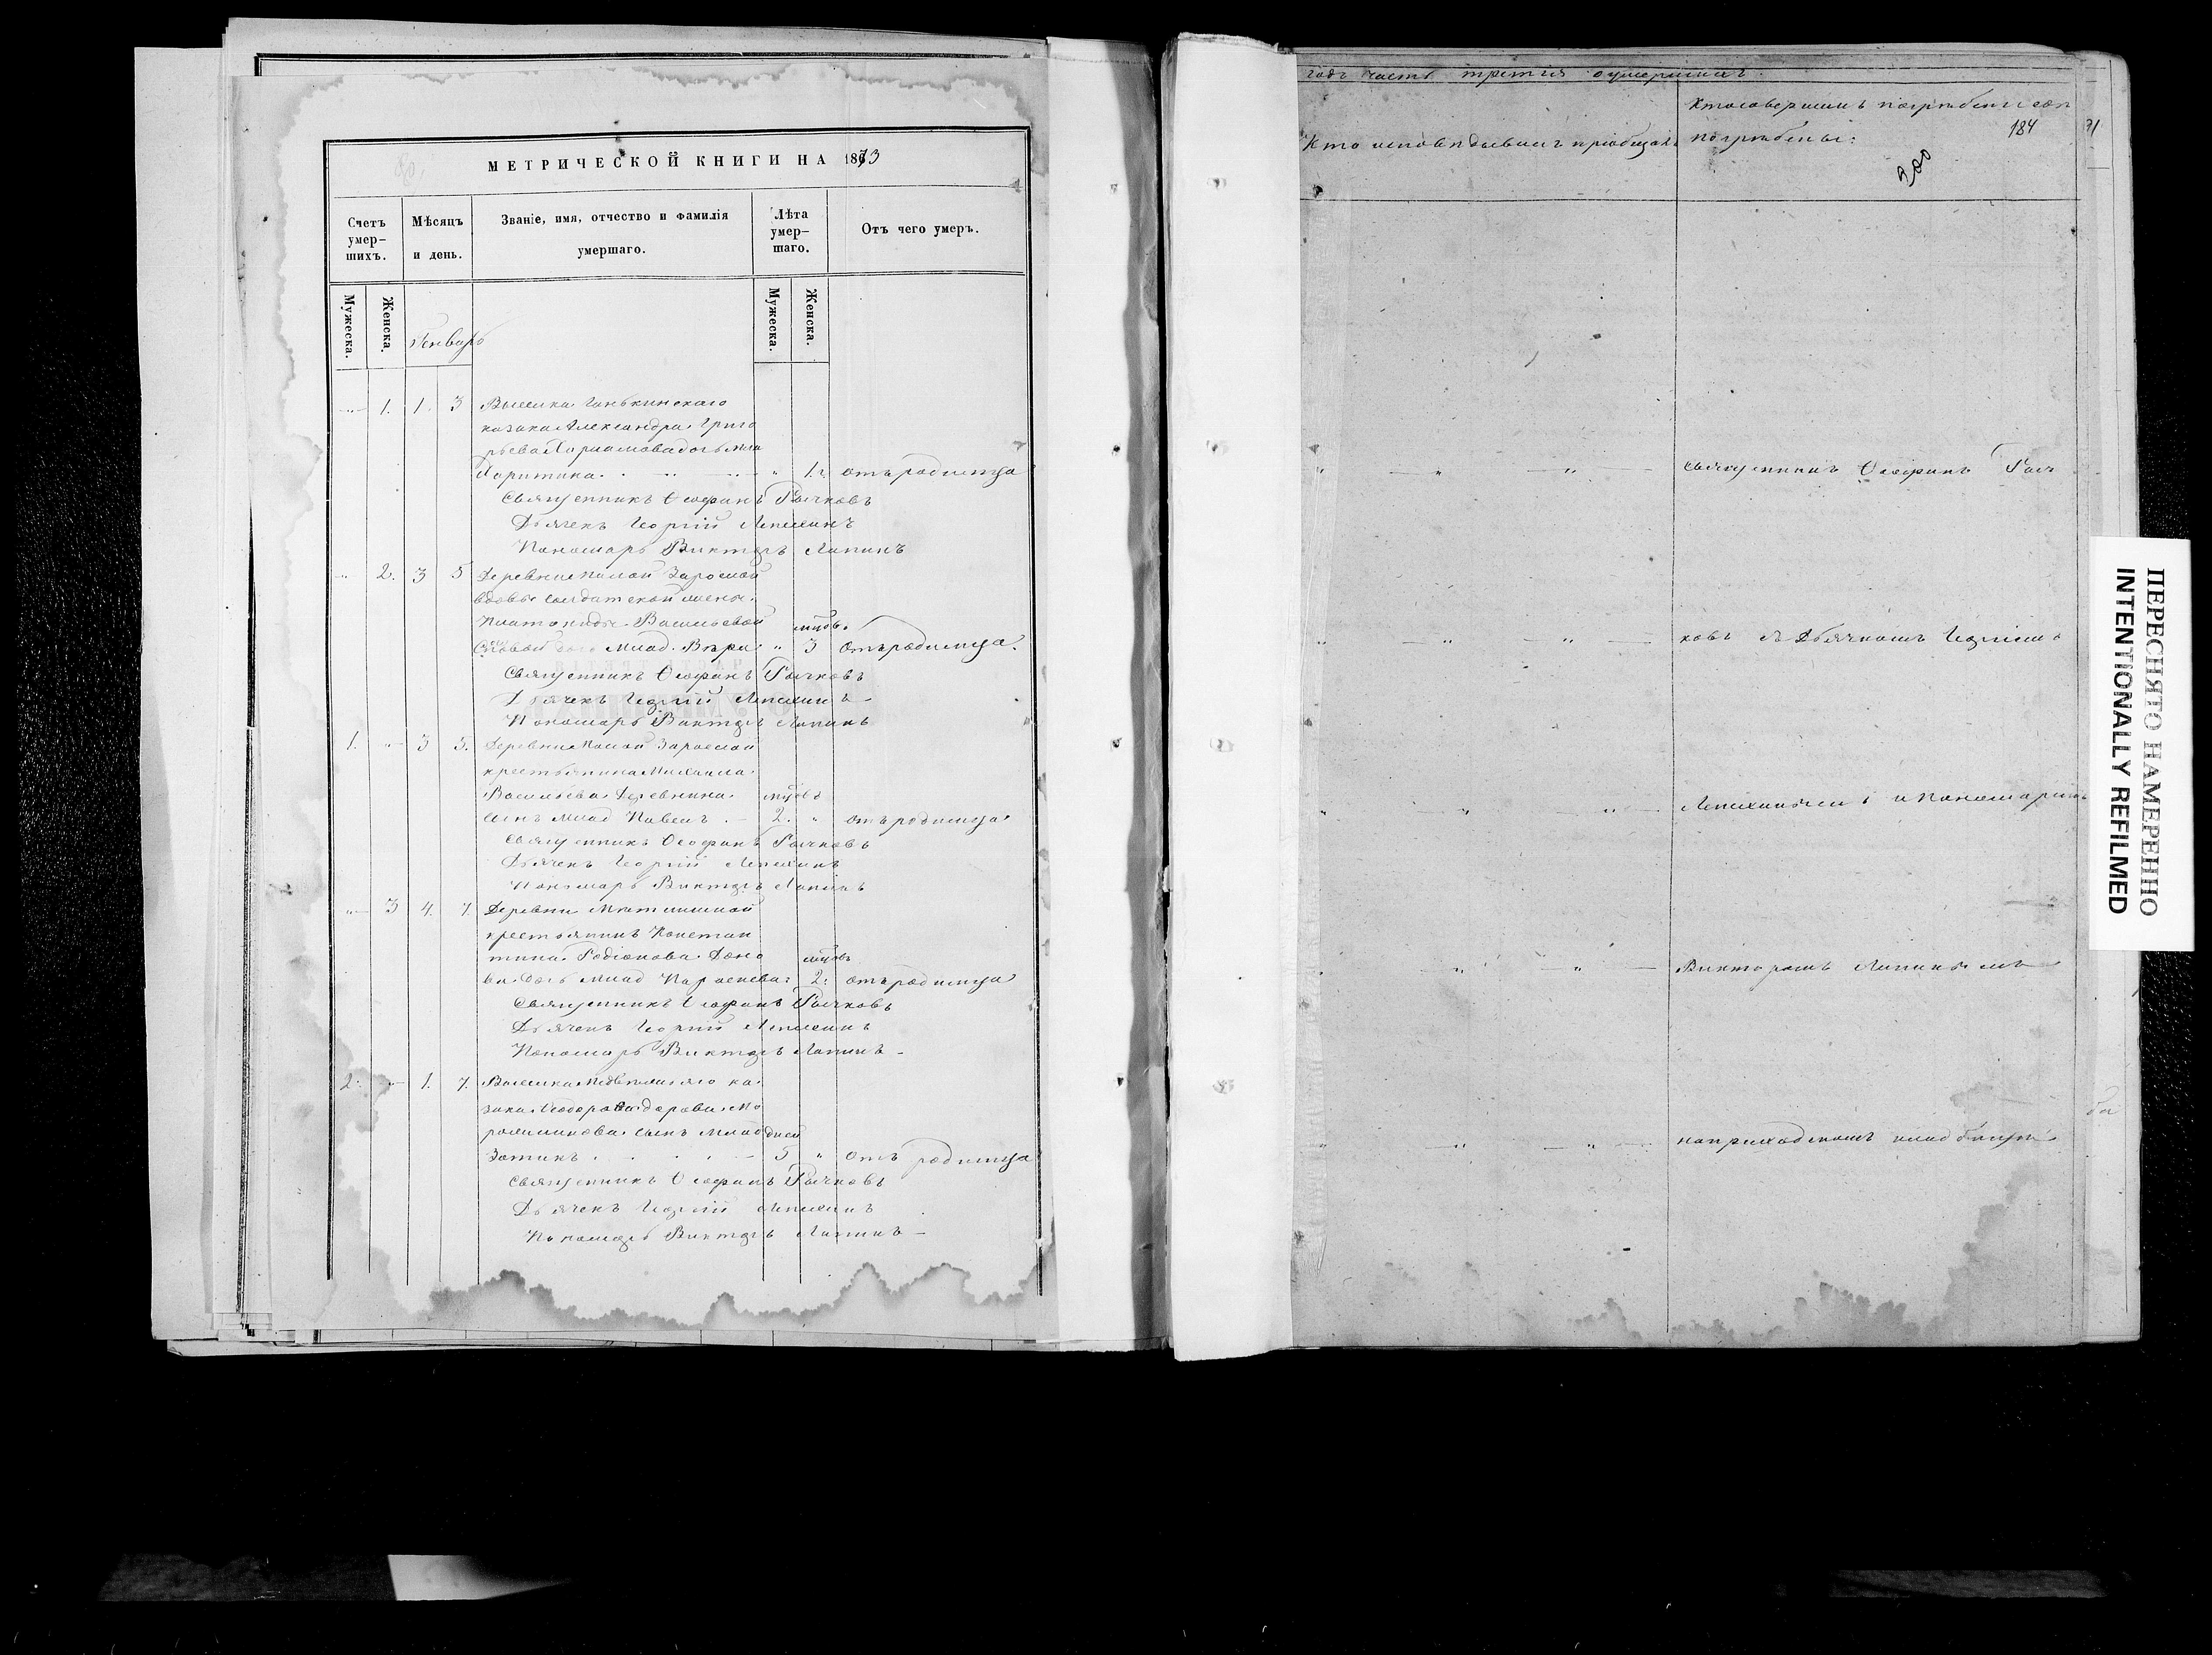 МЕТРИЧЕСКОЙ КНИГИ НА 1873
Счетъ умер-шихъ.
Мѣсяцъ и день.
Званіе, имя, отчество и фамилія умершаго.
Лѣта умер-шаго.
Отъ чего умеръ.
Мужеска.
Женска.
Генварь
Мужеска.
Женска.
„ 1. 1. 3 Выселка Ганькинскаго
казака Александра Григо
рьева дочь
1. отъ родимца
Священникъ Ѳеофанъ Рычковъ
Дьячекъ Георгій Лепихинъ
Пономарь Викторъ Лапинъ
„ 2. 3 5 Деревни Малой Зарослой
вдовы солдатской жены
Платониды Васильевой мцовъ
млад. „ 3 отъ родимца.
Священникъ Ѳеофанъ Рычковъ
Дьячекъ Георгій Лепихинъ
Пономарь Викторъ Лапинъ
1. „ 3 5. Деревни Малой Зарослой
крестьянина Михаила
Васильева Деревнина мцовъ
сынъ млад Павелъ. 2. „ отъ родимца
Священникъ Ѳеофанъ Рычковъ
Дьячекъ Георгій Лепихинъ
Пономарь Викторъ Лапинъ
„ 3 4. 7. Деревни
крестьянинъ Констан
тина Родіонова мцовъ
дочь млад Параскева 2. отъ родимца
Священникъ Ѳеофанъ Рычковъ
Дьячекъ Георгій Лепихинъ
Пономарь Викторъ Лапинъ
2. „ 1. 7. Выселка ка
зака Ѳеодора
сынъ млад дней
Зотикъ 5 „ отъ родимца
Священникъ Ѳеофанъ Рычковъ
Дьячекъ Георгій Лепихинъ
Пономарь Викторъ Лапинъ
годъ часть третія о умершихъ.
Кто исповѣдывалъ и пріобщалъ
Кто совершилъ погребеніе и гдѣ
погребены:
184
200
91
„ „ „ Священникъ Ѳеофанъ Рыч
„ „ „ ковъ съ Дьячкомъ Георгіемъ
„ „ „ Лепихинымъ и Пономаремъ
„ „ „ Викторомъ Лапинымъ
„ „ „ на приходскомъ кладбищѣ
ПЕРЕСНЯТО НАМЕРЕННО
INTENTIONALLY REFILMED